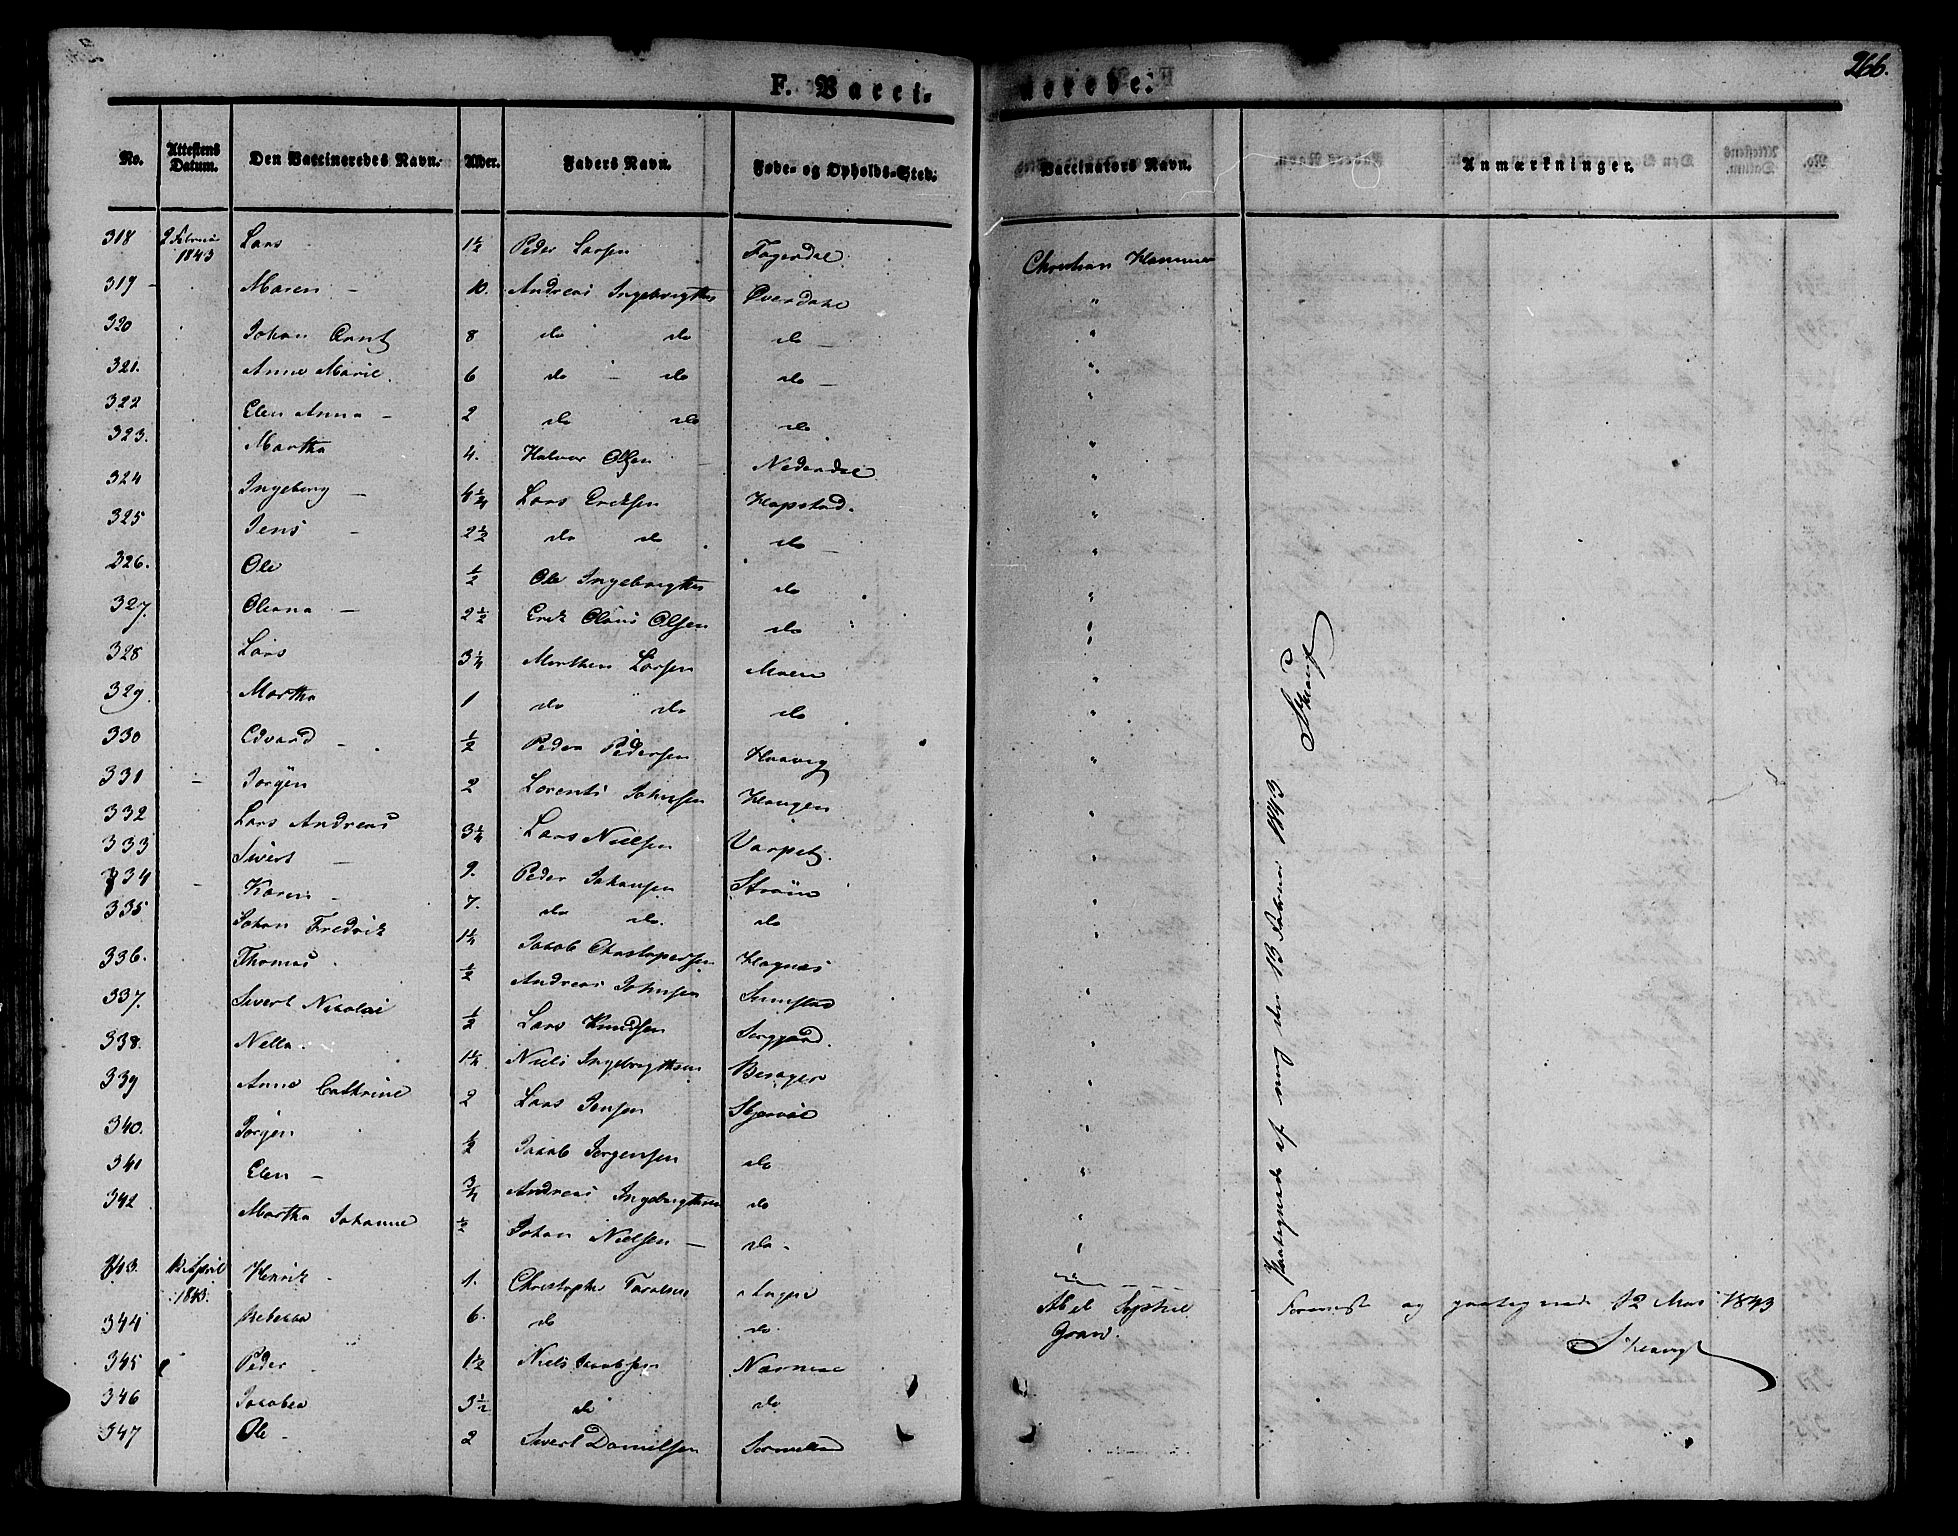 266.
F. Vacci-
nerede.
No. Attestens Datum. Den Vaccineredes Navn. Alder. Faders Navn. Føde- og Opholds-Sted. Vaccinators Navn. Anmærkninger.
318 2 Februar 1843 Lars 1½ Peder Larsen Fagerdal Christian Hammer
319 - Maren - 10. Andreas Ingebrigtsen Overdahl "
320 Johan Arnt 8 do do do - "
321. Anne Marie. 6 do - do do - "
322 Elen Anna - 2 do do do "
323. Martha 4. Halvor Olsen - Nederdal "
324 Ingeborg - 4¼ Lars Ericksen Hopstad. "
325 Jens - 2½ do do do - "
326. Ole ½ Ole Ingebrigtsen do "
327. Oleana - 2½ Erik Olaus Olsen do "
328 Lars 3¼ Morthen Larsen Moen "
329. Martha 1 do do do "
330 Edvard - ½ Peder Pedersen Haavig "
331 - Jørgen 2 Lorents Johnsen Haugen "
332 Lars Andreas 3¼ Lars Nielsen Varpet. "
333 Sivert - 9. Peder Johansen Strøm "
334 - Karen - 7. do do. do "
335 Johan Fredrik 1¼ Jacob Christophersen Hognæs "
336. Thomas. ½ Andreas Johnsen Sumstad "
337. Sivert Nicolai ½ Lars Knudsen Berggaard. "
338. Nella. 1¼ Niels Ingebrigtsen Besager "
339 Anne Cathrine 2 Lars Jensen Skjervøe "
340. Jørgen ½ Jacob Jørgensen do "
341 Elen - ¾ Andreas Ingebrigtsen do "
342 Martha Johanne ½ Johan Nielsen - do - "
Paategnede af mig den 13 Februar 1843
343. 12 April 1843. Henrik - 1. Christopher Abel Sophie
Grøn. Foreviist og paategnede 12 Mai 1843
344 Rebecca 6. do do.
345 Peder - 1½ Niels Jacobsen
346 Jacobea 3½ do do
347 Ole - 2 Sivert Danielsen